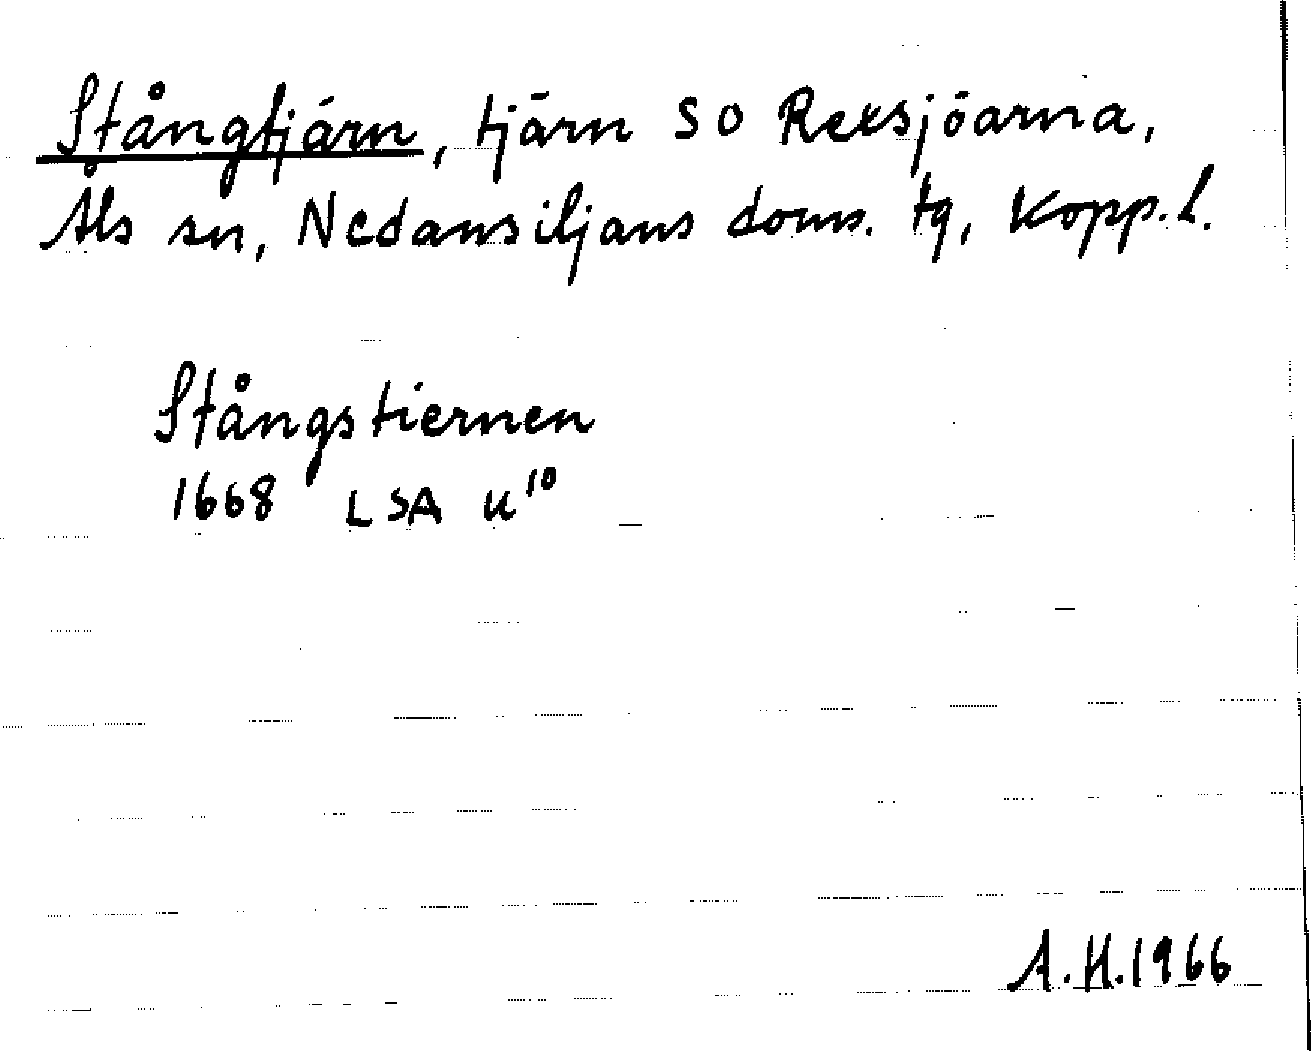 Stångtjärn, tjärn SO Rexsjöarna,
Åls sn, Nedansiljans doms. tg, Kopp. l.
Stångstiernen
1668 LSA U 10
A.H. 1966